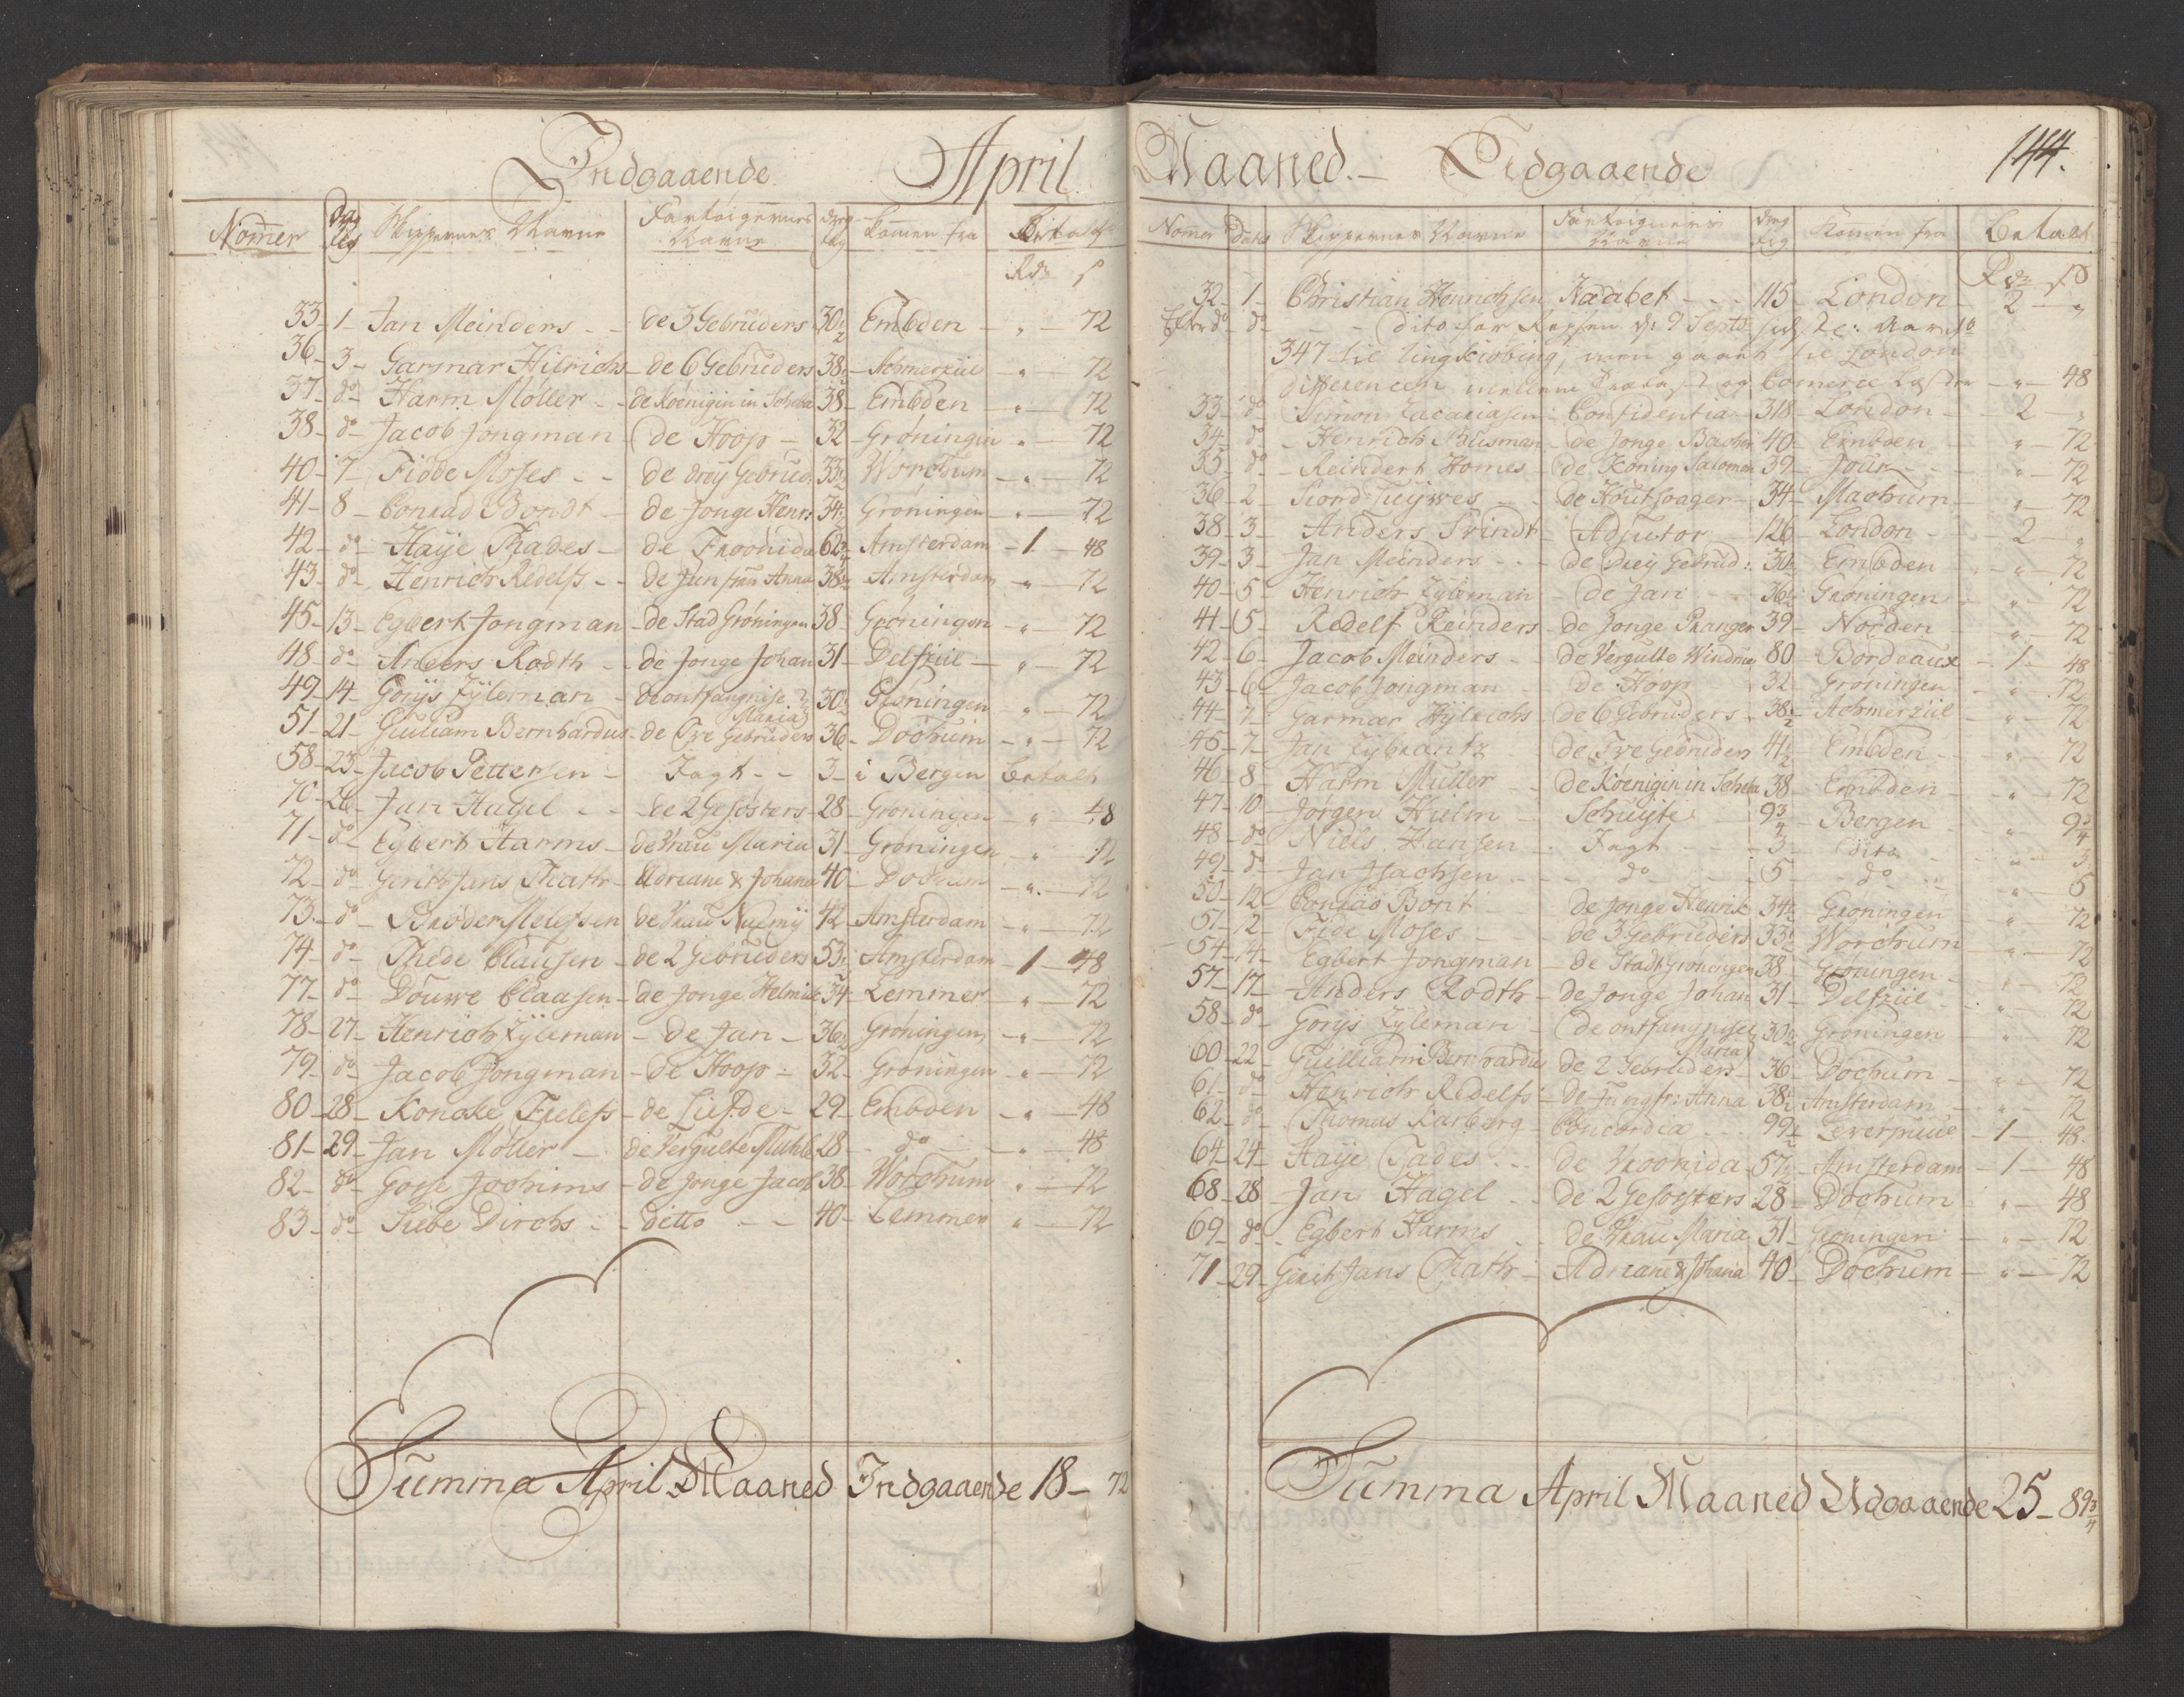 Indgaaende April
Nommer Dag Skippernes Navne Fartøigernes Navne Dreg Kommen fra Betalt
Rdr s
33 - 1 - Jan Meinders - - de 3 Gebruders 30 1/2 Embden - " - 72
36 - 3 - Garmar Hilrichs - de 6 Gebruders 38 1/2 - Achmerziil - " - 72
37 - do - Harm Møller - - de Koenigin in Scheba 38 - Embden - " - 72
38 - do - Jacob Jongman - de Hoop - 32 - Grøningen - " - 72
40 - 7 - Fidde Moses - - de drey Gebrud: 33 1/2 Worchum - " - 72
41 - 8 - Conrad Bondt - de Jonge Henr: 34 1/2 Grøningen - " - 72
42 - do - Haye Tjades - de Froonida 62 3/4 Amsterdam - 1 - 48
43 - do - Henrich Redelfs - - de Junfrau Anna 38 1/2 - Amsterdam - " - 72
45 - 13 - Egbert Jongman - de Stad Grøningen 38 Grøningen - " - 72
48 - do - Anders Rodth - - de Jonge Johan 31 - Delfziil - " - 72
49 - 14 - Gorys Zyleman - de ontfangnise Maria 30 1/2 Grøningen - " - 72
51 - 21 - Guiliam Bernhardus - de Tve Gebruders 36 - Dochum - " - 72
58 - 23 - Jacob Pettersen - Jagt - - 3 - i Bergen Betalt
70 - 26 - Jan Hagel - - de 2 Gesøsters - 28 - Groningen - " - 48
71 - do - Egbert Harms - de Vrau Maria 31 - Grøningen - " - 72
72 - do - Gerrit Jans Thath - Adriane & Johana 40 - Dochum - " - 72
73 - do - Broder Melefsen de Vrau Naemy 42 - Amsterdam - " - 72
74 - do - Thede Clausen - de 2 Gebruders 53 1/2 Amsterdam - 1 - 48
77 - do - Douwe Claasen - de Jonge Helmich 34 - Lemmer - " - 72
78 - 27 - Henrich Zyleman - de Jan - 36 1/2 Grøningen - " - 72
79 - do - Jacob Jongman - de Hoop - 32 - Grøningen - " - 72
80 - 28 - Konake Fulefs - de Liefde - 29 - Embden - " - 48
81 - 29 - Jan Møller - de Vergulte Muhle 28 - do - " - 48
82 - do - Gosse Jochims - de Jonge Jacob 38 - Worchum " - 72
83 - do - Siebe Dirchs - - ditto - - 40 - Lemmer " - 72
Summa April Maaned Indgaaende 18 - 72
Maaned. - Udgaaende 144.
Nomer Dato Skippernes Navne Fartøigernes Navne Dreg Komen fra Betalt
Rdr s
32 - 1 - Christian Henrichsen Haabet - - 115 - London - 2 - "
do - do - - dito for Reysen d: 9 Septb
347 til Ringkiøbing, men gaaet til London
differencen mellem og - " - 48
33 - do - Simon Zacariasen - Confidentia - 318 - London - 2 "
34 - do - Henrich Busman - de Jonge 40 - Embden - " - 72
35 - do - Reindert Homes - de Koning Salomon 39 - - " - 72
36 - 2 - Siord - - de Houtsager - 34 - Machum - " - 72
38 - 3 - Anders Prindt - Adjutor - 126 - London - 2 - "
39 - 3 - Jan Meinders - - de drey Gebrud: 30 1/2 Embden - " - 72
40 - 5 - Henrich Zyleman - de Jan - 36 1/2 Grøningen - " - 72
41 - 5 - Redelf Reinders - de Jonge Pranger 39 - Norden - " - 72
42 - 6 - Jacob Meinders - - de Vergulte Windmul 80 - Bordeaux - 1 - 48
43 - 6 - Jacob Jongman - de Hoop 32 - Grøningen - " - 72
44 - 7 - Garmar Hylrichs - de 6 Gebruders - 38 1/2 - Achmerziil - " - 72
45 - 7 - Jan Zybrantz - de Tve Gebruders 41 1/2 - Embden - " - 72
46 - 8 - Harm Muller - de Koenigin in Scheba 38 - Embden - " - 72
47 - 10 - Jørgen Hielm - Schuyte 9 3/4 - Bergen - " 9 3/4
48 - do - Niels Hansen - Jagt - - 3 - dito - " - 3
49 - do - Jan Jsachsen - - do - 5 - do - " - 5
50 - 12 - Conrad Bont - de Jonge Henrik 34 1/2 - Grøningen - " - 72
51 - 12 - Fide Moses - - de 3 Gebruders 33 1/2 Worchum - " - 72
54 - 14 - Egbert Jongman - de Stadt Groningen 38 - Grøningen - " - 72
57 - 17 - Anders Rodth - de Jonge Johan 31 - Delfziil - " - 72
58 - do - Gorys Zyleman - de ontfangnisse Maria 30 1/2 Grøningen - " - 72
60 - 22 - Guilliam Bernhardus de 2 Gebruders - 36 - Dochum - " - 72
61 - do - Henrich Redelfs - de Jungfr: Anna 38 1/2 Amsterdam - " - 72
62 - do - Thomas Kasberg - Concordia - 99 1/2 - Leverpuul - 1 - 48
64 - 24 - Haye Tades - - de Vroonida - 57 1/2 - Amsterdam - 1 - 48
68 - 28 - Jan Hagel - - de 2 Gesoysters 28 - Dochum - " - 48
69 - do - Egbert Harms - de Vrau Maria 31 - Grøningen - " - 72
71 - 29 - Gerit Jans Thath - Adriane & Johana 40 - Dochum - " - 72
Summa April Maaned Udgaaende 25 - 89 3/4